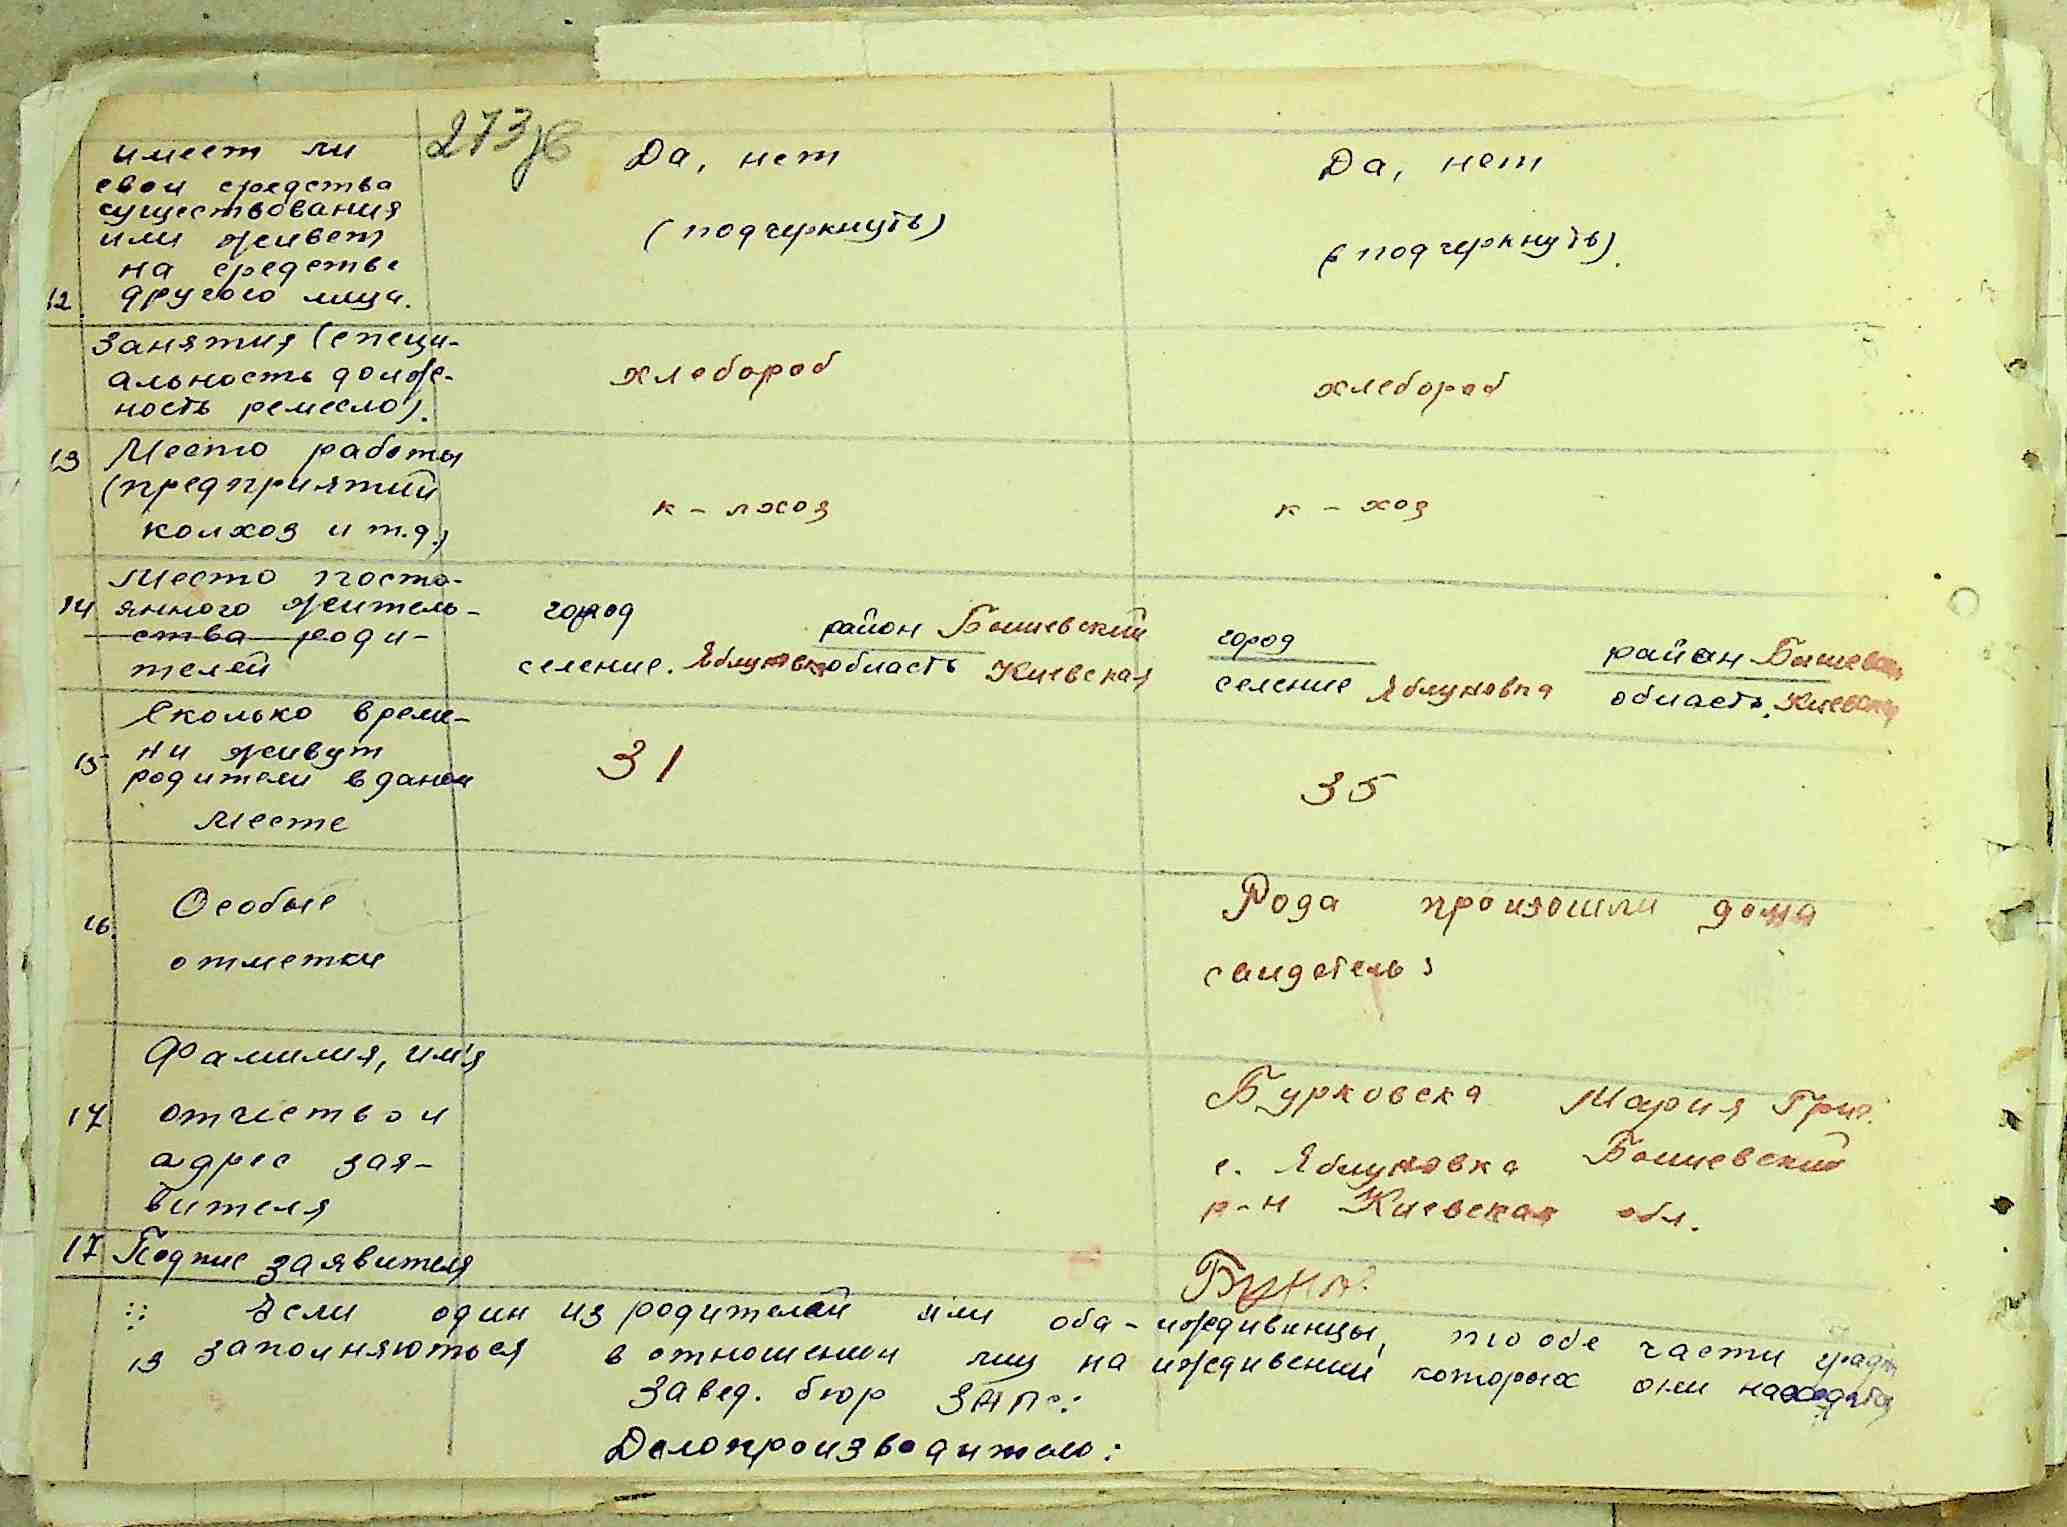 273
имеет ли
свои средства
существования
или живет
на средстве
12. другого лица.
Да, нет
(подчеркнуть)
Да, нет
(подчеркнуть).
занятия (специ-
альность долж-
ность ремесло).
хлебороб
хлебороб
13 Место работы
(предприятий
колхоз и т.д.)
к-лхоз
к-хоз
Место посто-
14 янного житель-
ства роди-
телей
город
район Бышевский
селение. Яблуновка область Киевская
город
район Бышевск
селение Яблуновка
область. Киевска
Сколько време-
15 ни живут
родители в даном
месте
31
35
16. Особые
отметки
Рода произошли дома
свидетель:
Фамилия, им'я
17 отчество и
адрес зая-
вителя
Бурковска Мария Григ.
с. Яблуновка Бышевский
р-н Киевская обл.
17 Подпис заявителя
Если один из родителей или оба-иждивенцы, то обе части
13 заполняються в отношении лиц на иждивений которых они находятся
завед. бюр ЗАГС:
Делопроизводителю: